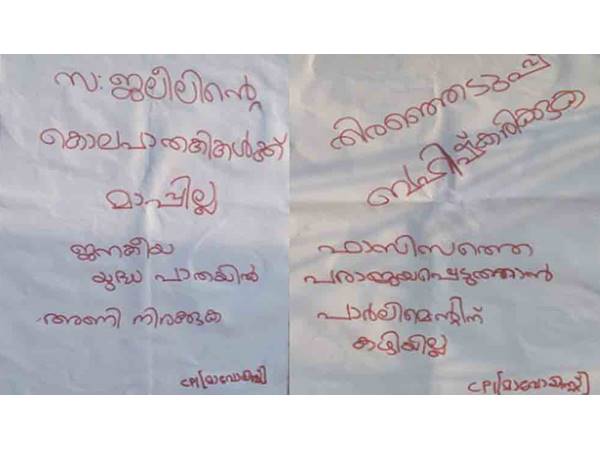 സ: ജലീലിന്റെ
കൊലപാതകികൾക്ക്
മാപ്പില്ല
ജനകീയ
യുദ്ധ പാതയിൽ
അണി നിരക്കുക
CPI [മാവോയിസ്റ്റ്]
തിരഞ്ഞെടുപ്പ്
ബഹിഷ്ക്കരിക്കുക
ഫാസിസത്തെ
പരാജയപ്പെടുത്താൻ
പാർലിമെന്റിന്
കഴിയില്ല
CPI [മാവോയിസ്റ്റ്]